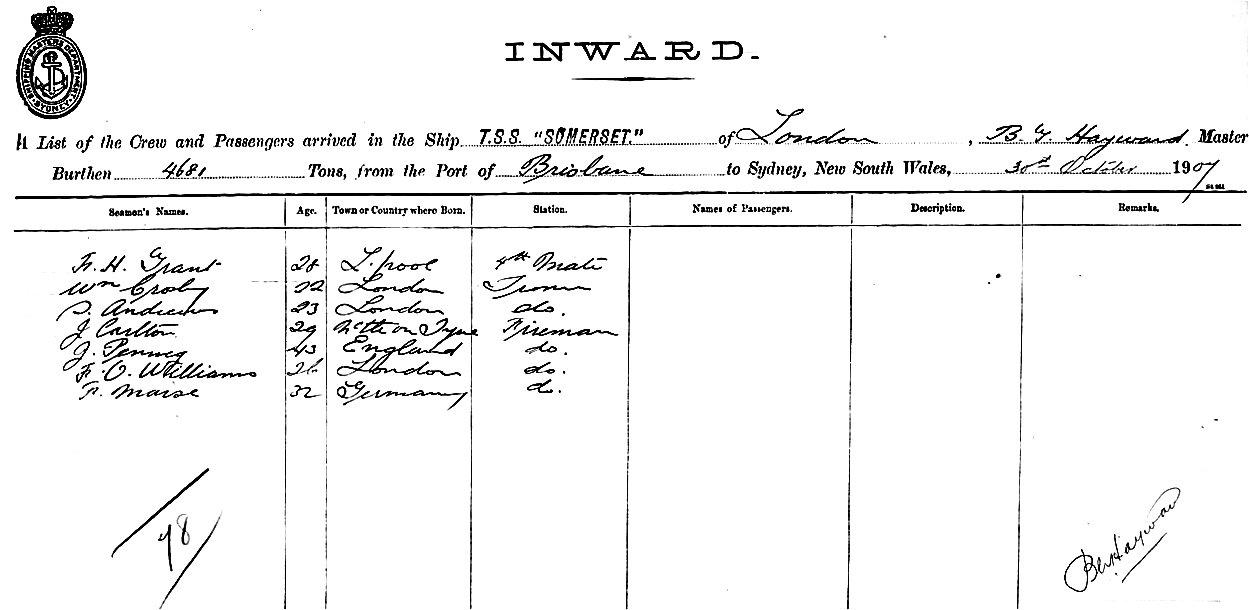 SHIPPING MASTERS DEPARTMENT SYDNEY
INWARD.
A List of the Crew and Passengers arrived in the Ship T.S.S. "SOMERSET." of London, B. G. Hayward Master
Burthen 4681 Tons, from the Port of Brisbane to Sydney, New South Wales, 30th October 1907
Seamen's Names. Age. Town or Country where Born. Station. Names of Passengers. Description. Remarks.
F. H. Grant 28 L.pool 4th Mate
Wm Crosby 22 London
S. Andrews 23 London do.
J Carlton 29 Ncstle on Tyne Fireman
J. 43 England do.
F. O. Williams 26 London do.
F. Maise 32 Germany do.
78
Hayward